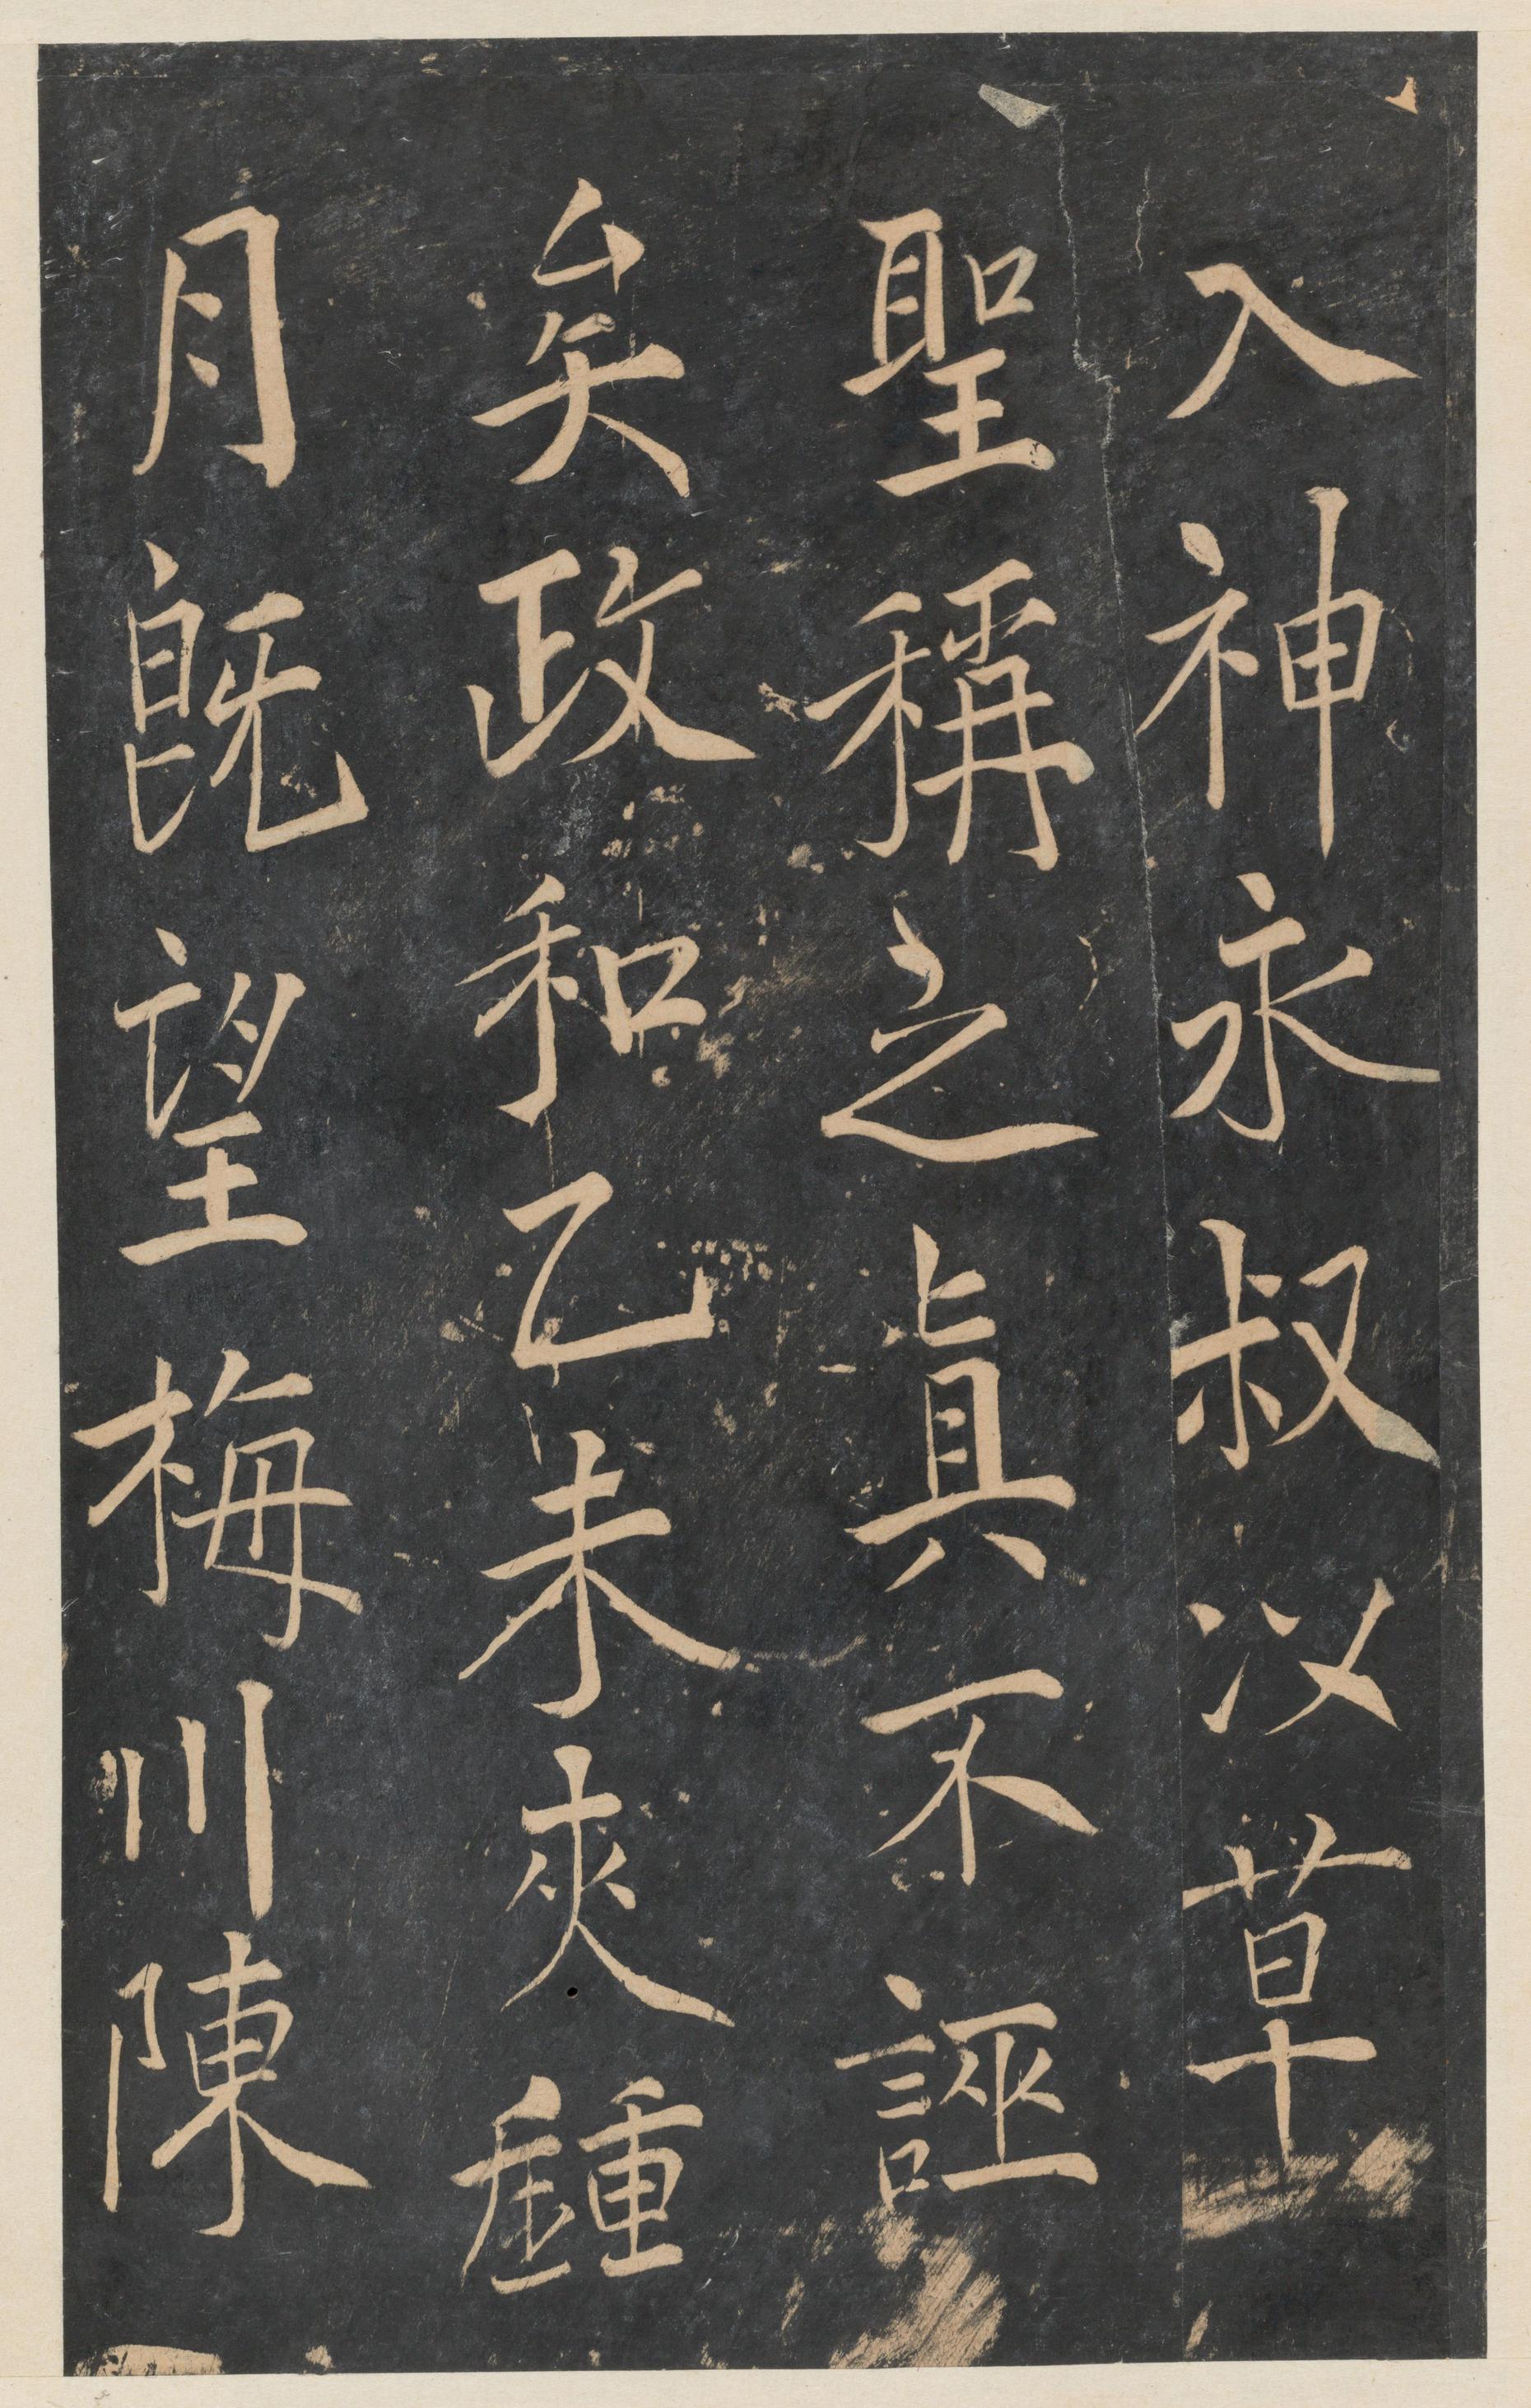 入神永叔以草
聖稱之眞不誣
矣政和乙未夾鍾
月旣望梅川陳